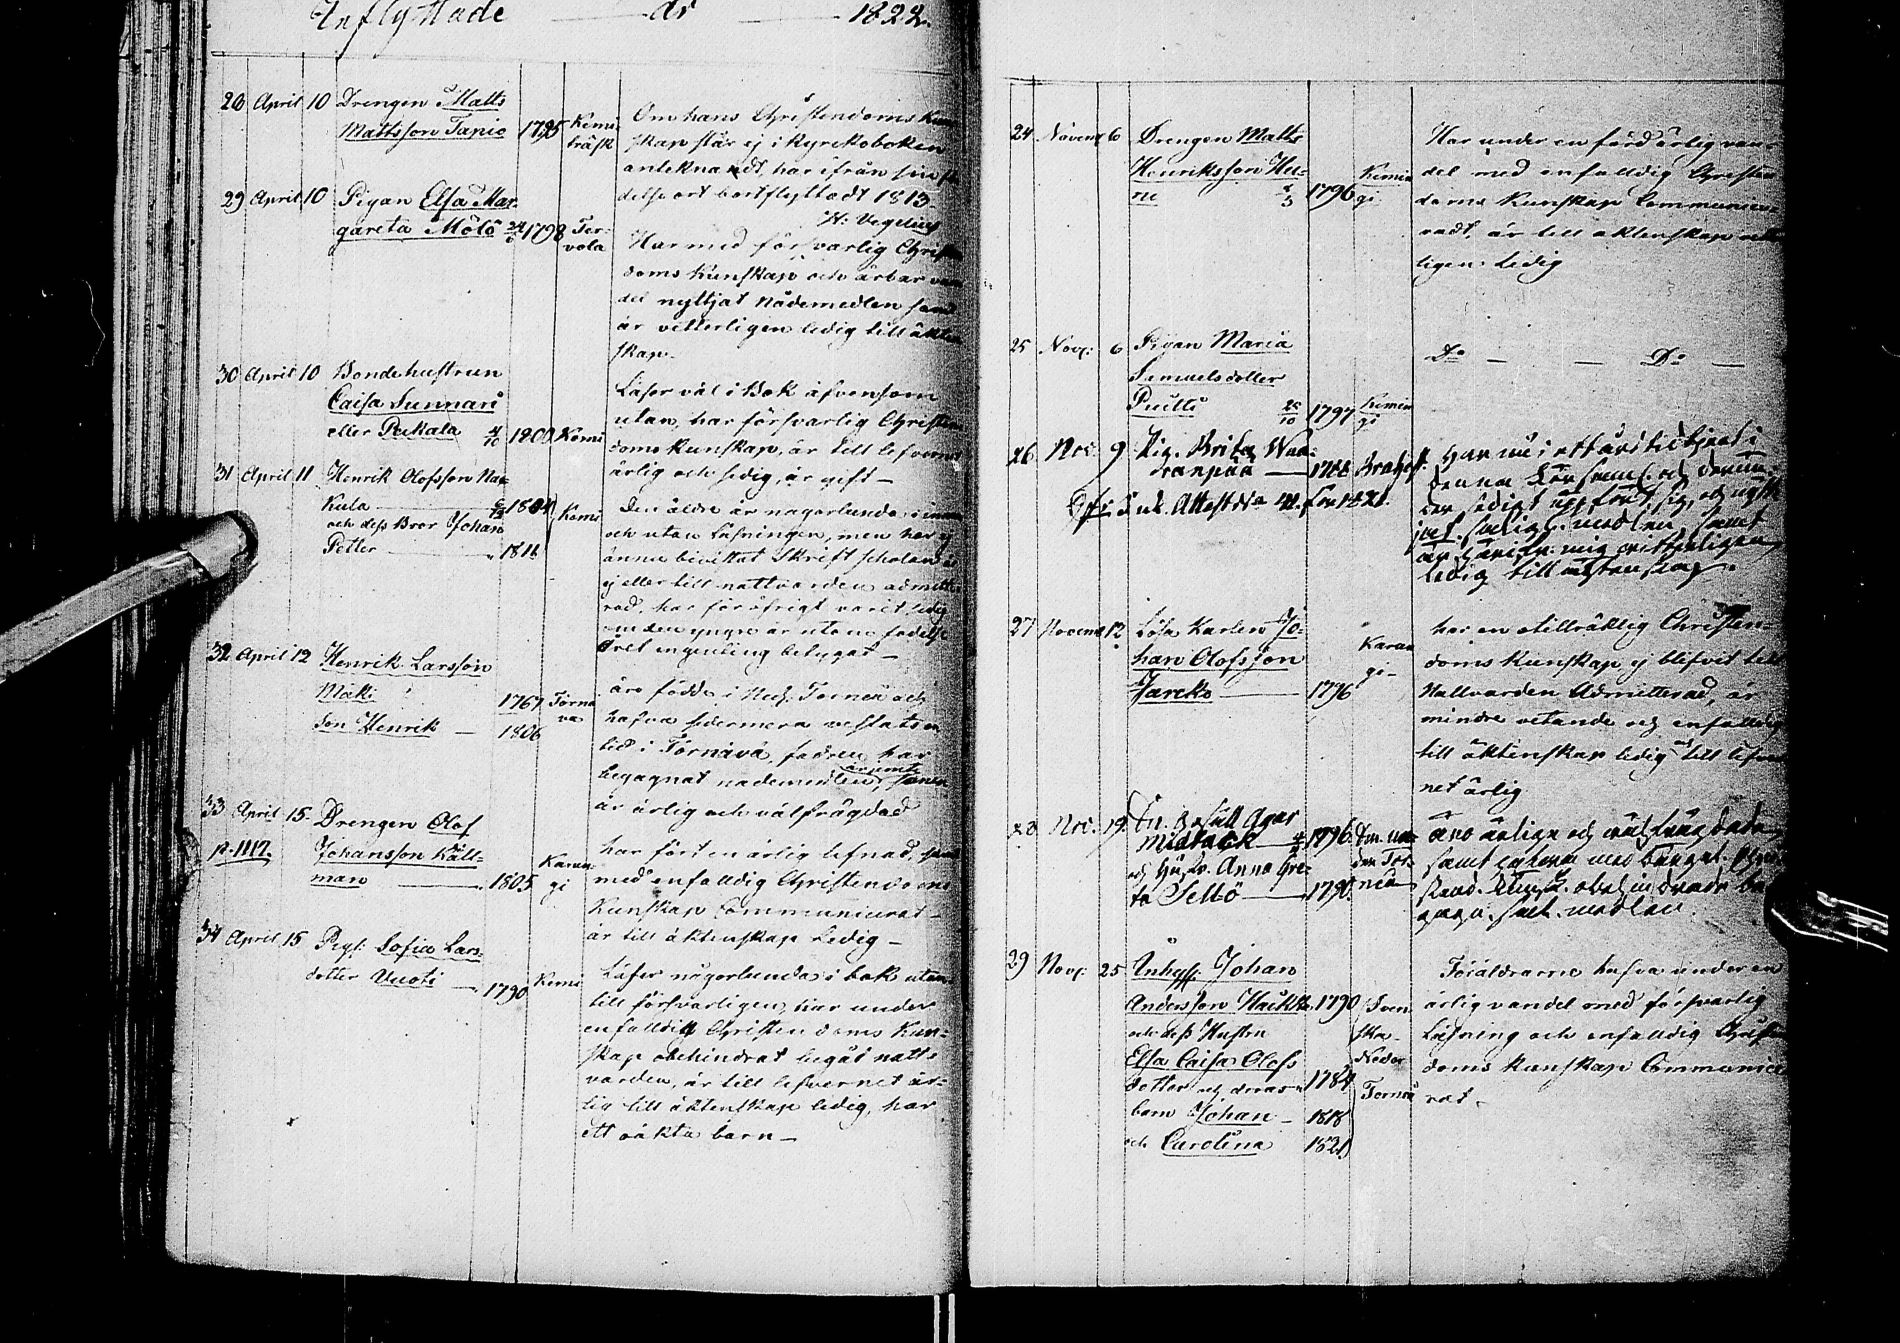 Inflyttade år 1822.
28 April 10 Drengen Matts
Mattsson Tapio 1795 Kemi
träsk
Om hans Christendoms Kun
skap står ej i kyrckoboken
anteknadt, har ifrån sin fö
delseort bortflyttadt 1813.
H: Vegelius
29 April 10 Pigan Elsa Mar-
gareta Mölö 1798 Ter-
vola
Har med försvarlig Christen
doms kunskap och ärbar van
del nyttjat nådemedlen samt
är vitterligen ledig till äkten
skap.
30 April 10 Bondehustrun
Caisa Sunnari
eller Pekala 1800 Kemi
Läser väl i Bok äfvensom
utan, har försvarlig Christen
doms kunskap, är till lefvernet
ärlig och sedig, är gift —
31 April 11 Henrik Olofsson Na
kula 1804 Kemi
och dess Bror Johan
Petter — 1811
Den äldre är någorlunda i innan
och utan Läsningen, men har ej
ännu bevistat Skriftscholan
ej eller till nattvarden admitte
rad, har för öfrigt varit sedig
om den yngre är utom födelse
året ingenting betygat —
32 April 12 Henrik Larsson
Mäki 1767 Törnä
vä
Son Henrik — 1806
äro födde i Ned. Torneå och
hafva sedermera vestats en
tid i Törnävä, fadren har
begagnat nademedlen, sonen
är ärlig och välfrägdad
33 April 15 Drengen Olof
p. 1117. Johansson Käll-
man — 1805 Karun
gi
har fört en ärlig lefnad, samt
med enfalldig Christendoms
Kunskap Communicerat —
är till äktenskap Ledig —
34 April 15 Pig: Sofia Lars-
dotter Vuoti — 1790 Kemi
Läser någorlunda i bok utan
till försvarligen, har under
enfalldig Christendoms Kun-
skap obehindrat begåt natt-
varden, är till lefvernet är-
lig till äktenskap ledig, har
ett oäkta barn —
24 Novemb 6 Drengen Matts
Henriksson Hu-
ru 1796 Kemin
gi
Har under en förd ärlig van-
del med enfalldig Christen
doms Kunskap Communice-
radt, är till äktenskap vitter
ligen ledig
25 Nov: 6 Pigan Maria
Samuelsdotter
Puitti 25/10 1797 Kemin
gi
Do — — Do —
26 Nov. 9 Pig. Brita Waa-
ranpää — 1788
Har nu i ett års tid tjent i
denna Församl. och derun-
der sedigt uppfört sig, och nytt
jat salig. medlen, samt
ledig till äktenskap.
27 Novemb 12 Lösa Karlen Jo-
han Olofsson
Jareko — 1796 Karun
gi —
har en otillräklig Christen-
doms kunskap, ej blifvit till
Nattvarden Admitterad, är
mindre vetande och enfalldig
till äktenskap ledig och till lefver
net ärlig
28 Nov. 19.
1796. Ned. Tor-
neå
och Hustr. Anna Gre-
ta — 1790.
äro ärliga och välfrägdade
samt
29 Nov: 25 Inhys: Johan
Andersson Haikka 1790 Sven
ska
och dess Hustru
Elsa Caisa Olofs Neder
dotter och deras 1784 Torneå
barn Johan — 1818
och Carolina 1821
Föräldrarne hafva under en
ärlig vandel med försvarlig
Läsning och enfalldig Christen
doms kunskap Communice
rat —